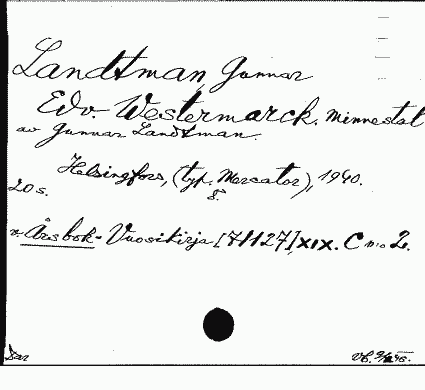 Landtman, Gunnar
Edv. Westermarck. Minnestal
av Gunnar Landtman.
Helsingfors, (typ. Mercator), 1940.
20 s. 8.
Årsbok - Vuosikirja [71127] XIX. C n:o 2.